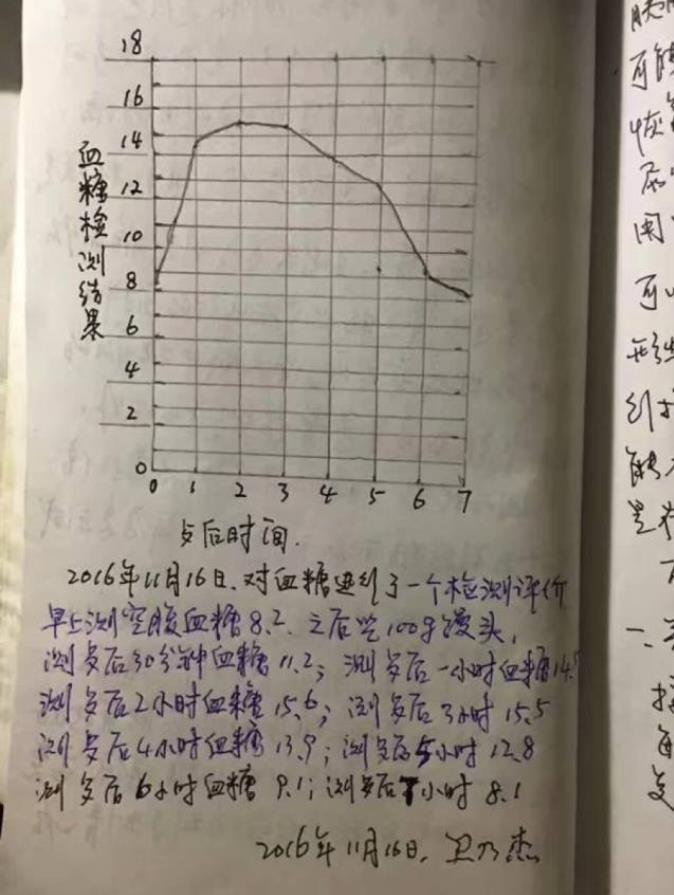 18
16
14
12
10
8
6
4
2
0
血糖检测结果
0 1 2 3 4 5 6 7
后时间.
2016年11月16日.对血糖进行了一个检测评价
早上测空腹血糖8.2.之后吃100g馒头,
测多后30分钟血糖11.2;测多后一小时血糖14.
测多后2小时血糖15.6;测多后3小时15.5
测多后4小时血糖13.9;测多后5小时12.8
测多后6小时血糖9.1;测多后7小时8.1
2016年11月16日.卫乃杰
可能
恢
可以
形